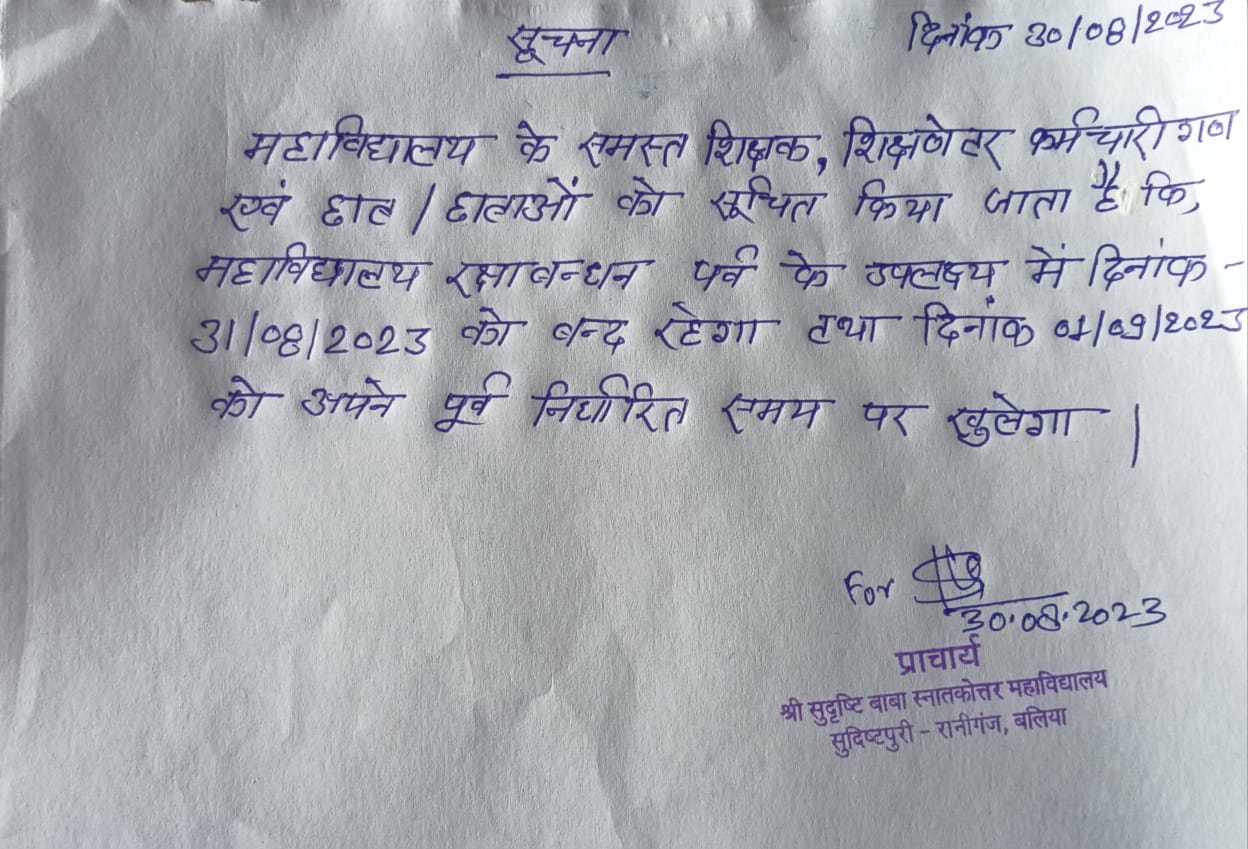 सूचना
दिनांक 30/08/2023
महाविद्यालय के समस्त शिक्षक, शिक्षणेतर कर्मचारी गण
एवं छात्र / छात्राओं को सूचित किया जाता है कि,
महाविद्यालय रक्षाबन्धन पर्व के उपलक्ष्य में दिनांक -
31/08/2023 को बन्द रहेगा तथा दिनांक 01/09/2023
को अपने पूर्व निर्धारित समय पर खुलेगा |
For
30.08.2023
प्राचार्य
श्री सुदृष्टि बाबा स्नातकोत्तर महाविद्यालय
सुदिष्टपुरी - रानीगंज, बलिया